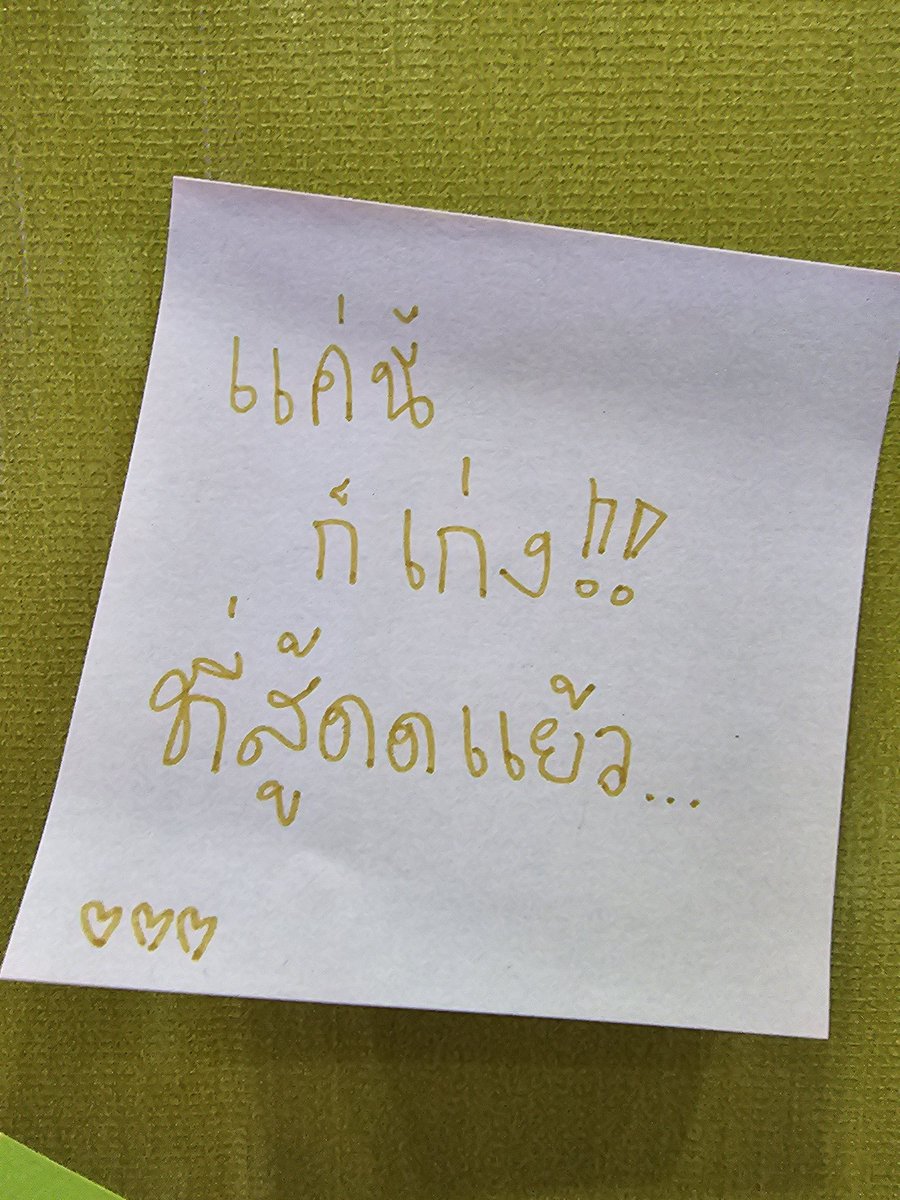 แค่นี้
ก็เก่ง!!
ที่สู้ดดแย้ว...
♡♡♡